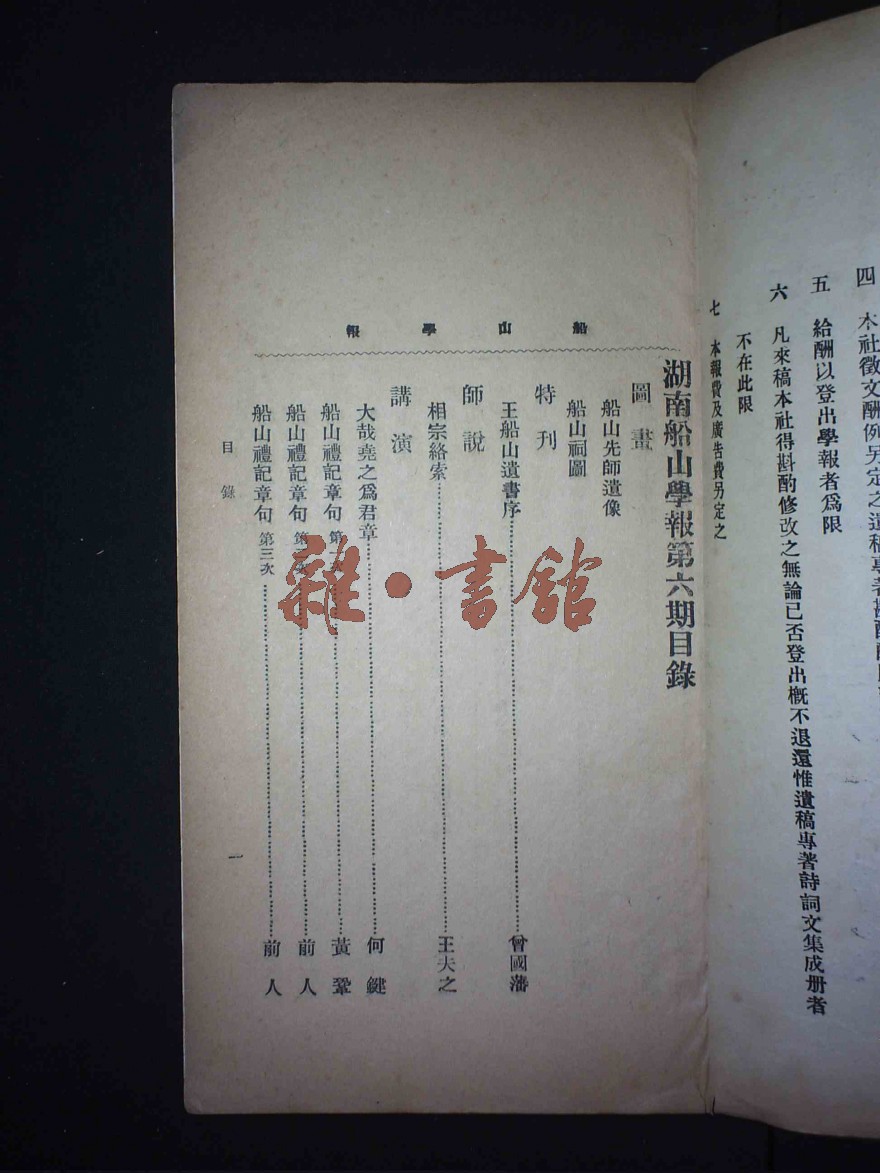 四　本社徵文酬例另定之遺稿專著
五　給酬以登出學報者爲限
六　凡來稿本社得斟酌修改之無論已否登出概不退還惟遺稿專著詩詞文集成册者
不在此限
七　本報費及廣告費另定之
船山學報
湖南船山學報第六期目錄
圖畫
船山先師遺像
船山祠圖
特刊
王船山遺書序 曾國藩
師說
相宗絡索 王夫之
講演
大哉堯之爲君章 何鍵
船山禮記章句 黃鞏
船山禮記章句 前人
船山禮記章句 第三次 前人
目錄
一
雜·書館